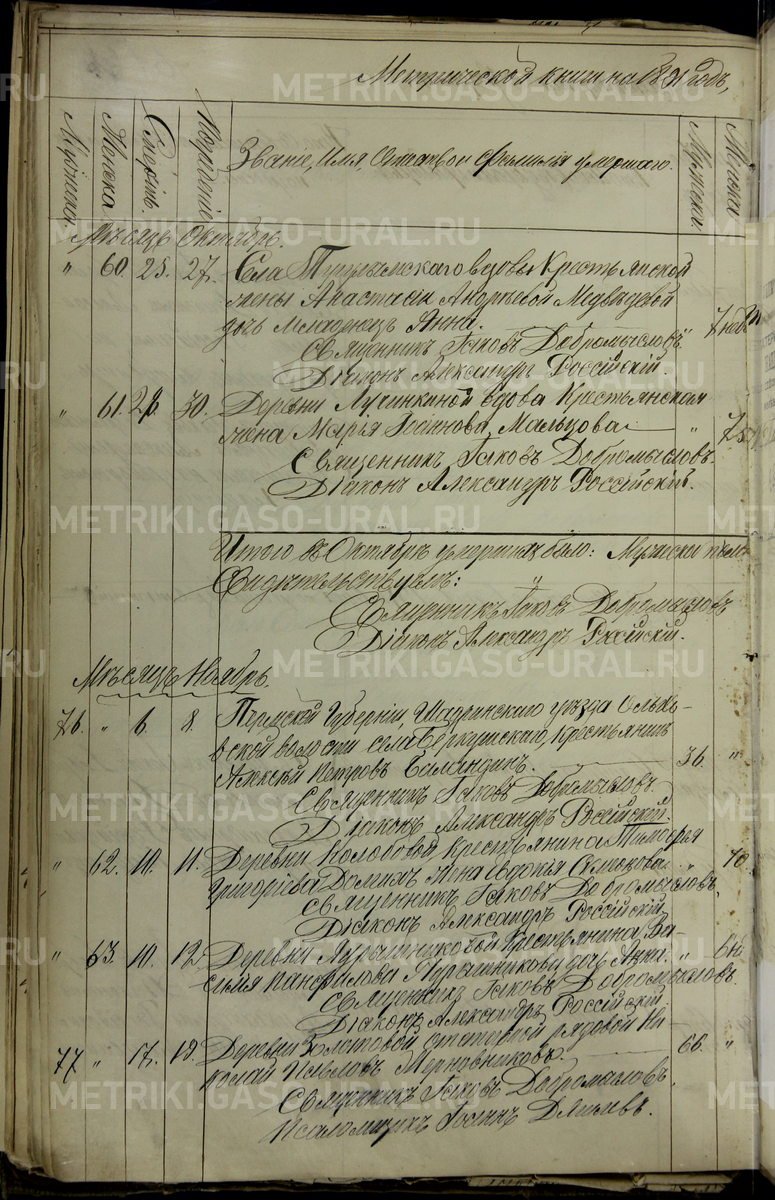 Метрической книги на 1891 годъ,
Мужеска
Женска
Смерти.
Погребенiе
Званiе, Имя, Отчество и Фамилiя умершаго.
Мужеска.
Женска
Мѣсяцъ Октябрь.
" 60. 25. 27. Села Тугулымскаго вдовы Крестьянской
жены Анастасiи Андреевой Медведевой
дочь младенецъ Анна. " 7 нед
Священникъ Iаковъ Добромысловъ.
Дiаконъ Александръ Россiйскiй.
" 61. 28. 30. Деревни Лучинкиной вдова Крестьянская
жена Марья Iоаннова Мальцова " 75
Священникъ Iаковъ Добромысловъ.
Дiаконъ Александръ Россiйскiй.
Итого въ Октябрѣ умершихъ было: Мужеска пола
Свидѣтельствуемъ:
Священникъ Iаковъ Добромысловъ
Дiаконъ Александръ Россiйскiй.
Мѣсяцъ Ноябрь.
76. " 6. 8. Пермской Губернiи, Шадринскаго уѣзда Ольхо-
вской волости села Крестьянинъ
Алексiй Петровъ 36. "
Священникъ Iаковъ Добромысловъ.
Дiаконъ Александръ Россiйской.
" 62. 10. 11. Деревни Колобовой, Крестьянина Тимофея
Григорiева жена Евдокiя " 70
Священникъ Iаковъ Добромысловъ.
Дiаконъ Александръ Россiйскiй.
" 63. 10. 12. Деревни Крестьянина Ва-
силiя Панфилова дочь Анна "
Священникъ Iаковъ Добромысловъ.
Дiаконъ Александръ Россiйскiй.
77 " 17. 19. Деревни Золотовой отставной рядовой Ни-
колай 66. "
Священникъ Iаковъ Добромысловъ
Псаломщикъ Iоаннъ
METRIKI.GASO-URAL.RU